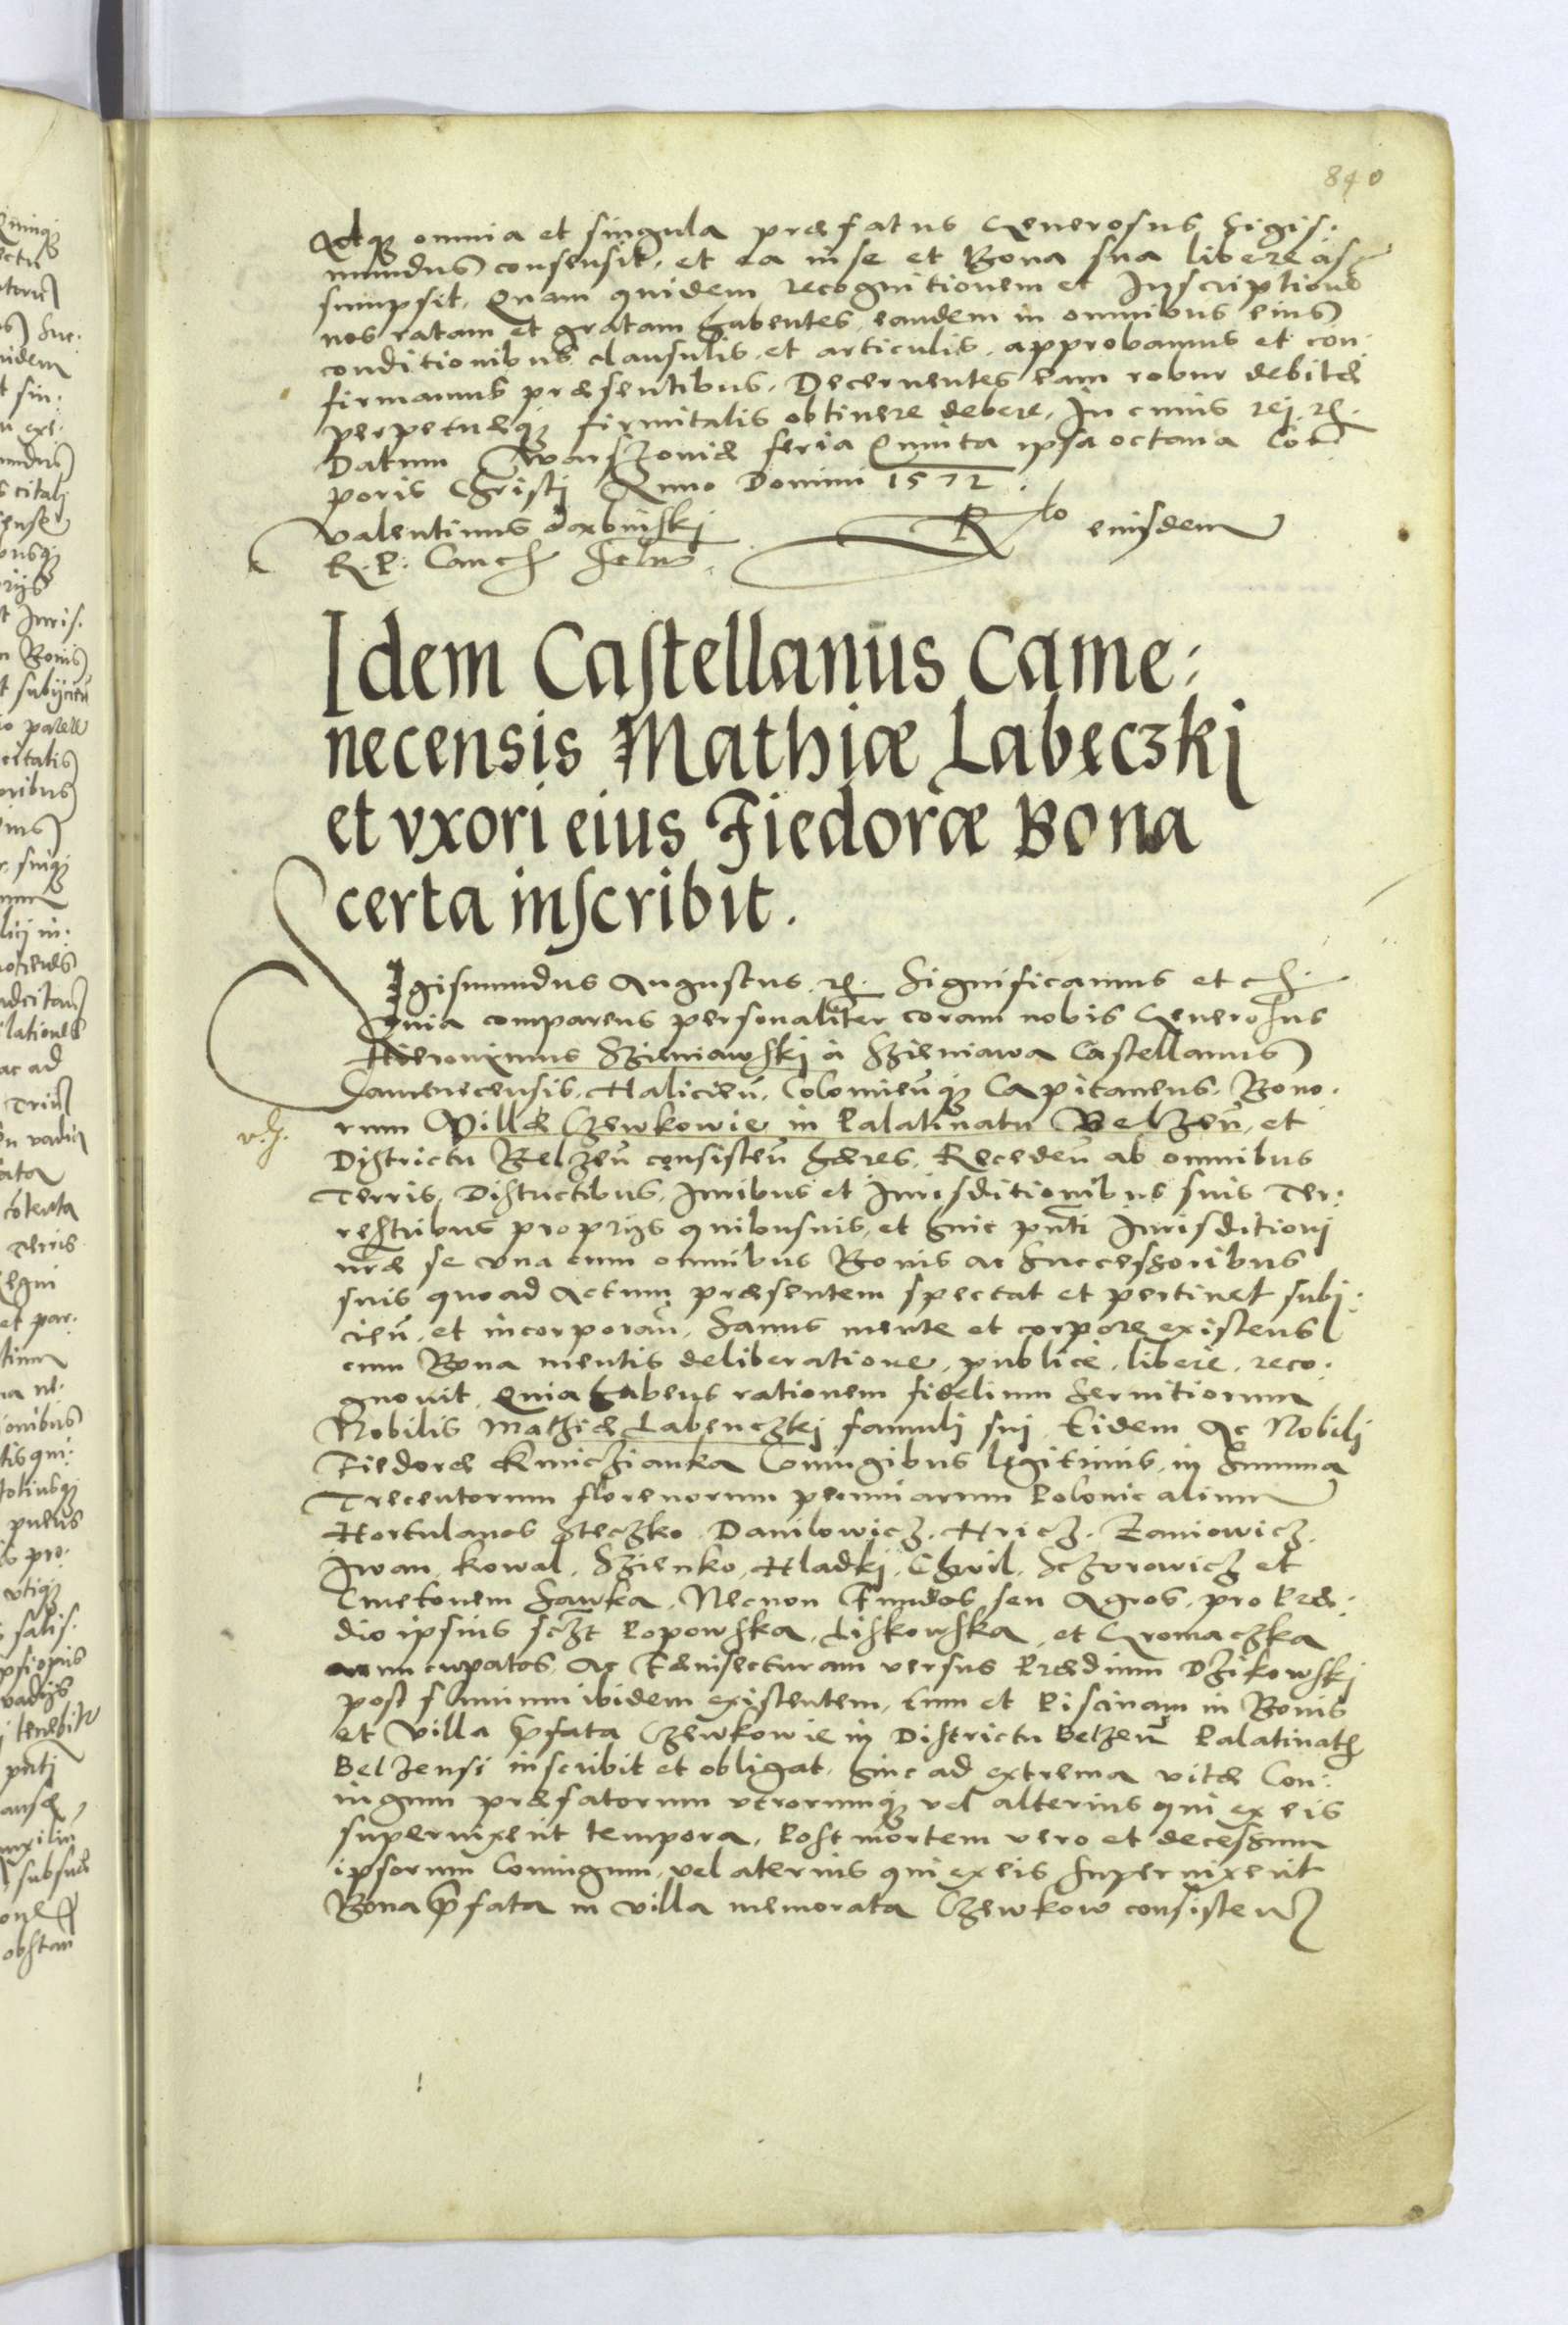 840
Atq3 omnia et singula præfatus Generosus Sigis:
mundus consensit, et ea in se et Bona sua libere as
sumpsit. Quam quidem recognitionem et Inscriptione
nos ratam et gratam habentes, eandem in omnibus eius
conditionibus clausulis, et articulis, approbamus et con
firmamus præsentibus. Decernentes eam robur debitæ
perpetuæq3 firmitatis obtinere debere. In cuius rej. rę.
Datum Warszoviæ feria Quinta ipsa octava Cor
poris Christj Anno Domini 1572.
Valentinus Dæbinskj
R. P. Canch
Rlo eiusdem
Idem Castellanus Came:
necensis Mathiæ Labęczkj
et vxori eius Fiedoræ Bona
certa inscribit.
Sigismundus Augustus. rę. Significamus et c.
Quia comparens personaliter coram nobis Generosus
Hieronimus Szieniawskj à Szieniawa Castellanus
Camenecensis, Halicieñ, Colomieñq3 Capitaneus, Bono.
rum Villæ Czewkowie in Palatinatu Belzeñ, et
Districtu Belzeñ consisteñ hæres, Recedeñ ab omnibus
Terris, Districtibus, Iuribus et Iurisditionibus suis Ter:
restribus proprijs quibusuis, et huic pñti Iurisditioni
nræ se vna cum omnibus Bonis ac Successoribus
suis quo ad Actum præsentem spectat et pertinet subi:
cieñ, et incorporañ, Sanus mente et corpore existens
cum Bona mentis deliberatione, publice, libere, reco.
gnouit, Quia habens rationem fidelium Seruitiorum
Nobilis Mathiæ Labenczkj famulj suj, Eidem Ac Nobilj
Fiedoræ Kmiczianka Coniugibus legitimis, in Summa
Trecentorum florenorum pecuniarum Polonicalium
Hortulanos Steczko Danilowicz, Hricz, Zaniowicz,
Iwan, Kowal, Szienko, Hladkj, Chwil, Sczurowicz et
Cmetonem Sawka, Necnon Fundos seu Agros, pro Præ:
dio ipsius sczt Popowska, Liskowska, et Gromaczka
nuncupatos, Ac Fænisecturam versus Prædium Dzikowskj
post flumium ibidem existentem, Cum et Piscinam in Bonis
et Villa p̃fata Czewkowie in Districtu Belzeñ Palatinatu
Belzensi inscribit et obligat, hinc ad extrema vitæ Con:
iugum præfatorum vtrorumq3 vel alterius qui ex eis
superuixerit tempora, Post mortem vero et decessum
ipsorum Coniugum, vel aterius qui ex eis Superuixerit
Bona p̃fata in Villa memorata Czewkow consisteñ